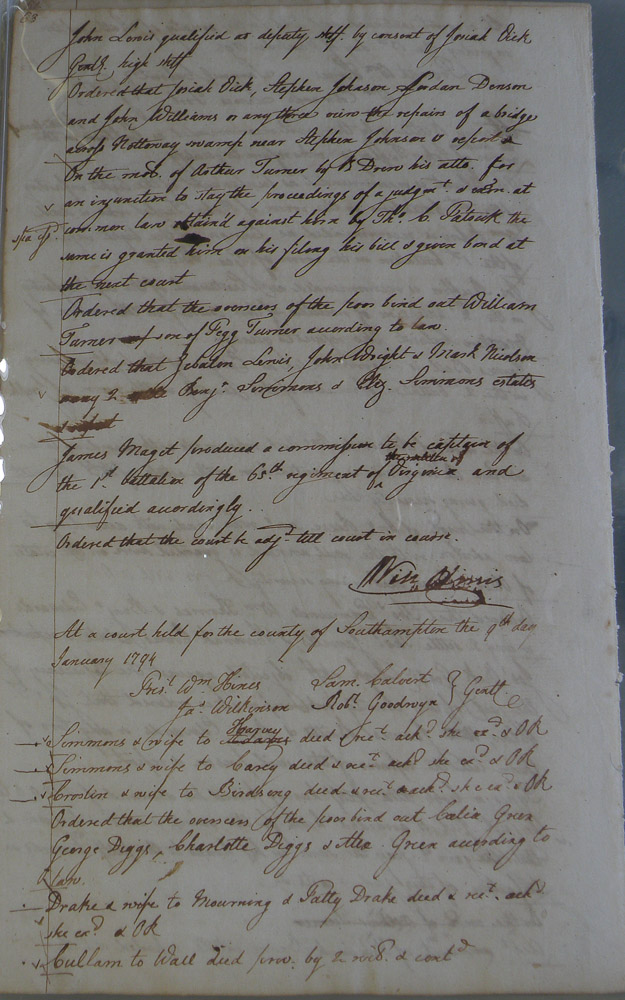 John Lewis qualified as deputy shff. by consent of Josiah Dick
Gentl. high shff
Ordered that Josiah Dick, Stephen Johnson Jordan Denson
and John Williams or any three view the repairs of a bridge
across Nottoway swamp near Stephen Johnson & report
On the mo. of Arthur Turner by B Drew his atto. for
an injunction to stay the proceedings of a judgmt. & at
common law obtain'd against him by Tho. C. the
same is granted him on his filing his bill & given bond at
the next court
Ordered that the overseers of the poor bind out William
Turner son of Pegg Turner according to law.
Ordered that Zebulon Lewis, John Wright & Mark Nicolson
any 2 Benjn. Simmons & Simmons estates
& report
James Maget produced a commission to be captain of
the 1st. battalion of the 65th regiment of the militia of Virginia and
qualified accordingly.
Ordered that the court be adjd. till court in course.
At a court held for the county of Southampton the 9th day
January 1794
Prest. Wm Hines Sam. Calvert } Gentl
Jas. Wilkinson Robt. Goodwyn
Simmons & wife to Harvey deed & rect. ackd. she exd. & OR
Simmons & wife to Carey deed & rect. ackd she exd. & OR
Croslin & wife to Birdsong deed & rect. ackd. she exd. & OR
Ordered that the overseers of the poor bind out Celia Green
George Diggs, Charlotte Diggs & Green according to
law.
Drake & wife to Mourning & Patty Drake deed & rect. ackd
she exd. & OR
Cullam to Wall deed prov. by 2 wits. & contd